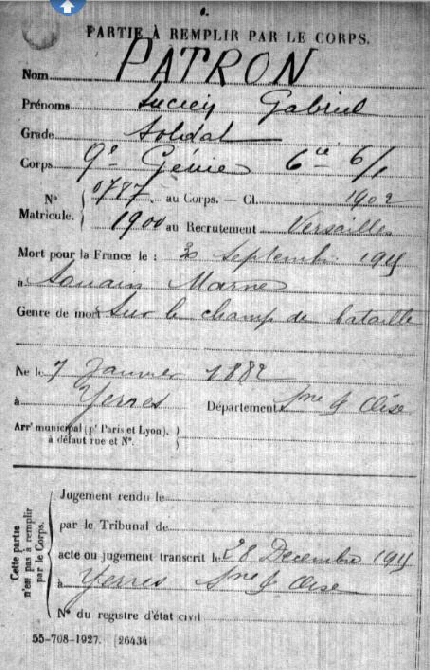 PARTIE À REMPLIR PAR LE CORPS.
Nom PATRON
Prénoms Lucien Gabriel
Grade Soldat
Corps 9e Génie 6ce 6/1
N° Matricule. { 0787 au Corps. — Cl. 1902
1900 au Recrutement Versailles
Mort pour la France le : Septembre 1915
à Souain Marne
Genre de mort Sur le champ de bataille
Né le 7 Janvier 1882
à Yerres Département Sne & Oise
Arrt municipal (pr Paris et Lyon), à défaut rue et N°. }
Cette partie n'est pas à remplir par le Corps. {
Jugement rendu le
par le Tribunal de
acte ou jugement transcrit le 28 Décembre 1915
à Yerres Sne & Oise
N° du registre d'état civil
55-708-1927. [26434